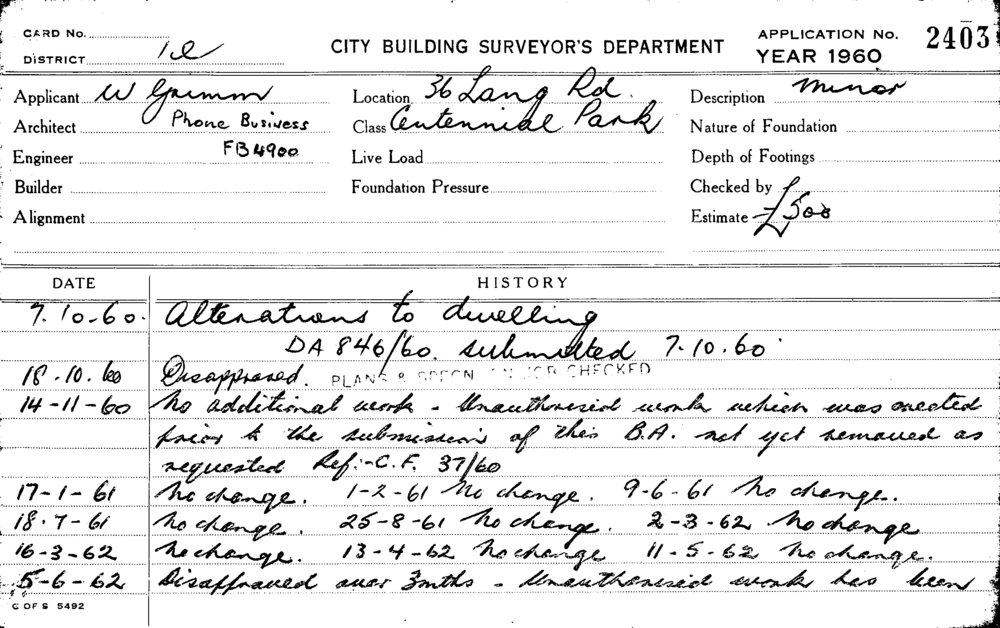 CARD No.
DISTRICT
CITY BUILDING SURVEYOR'S DEPARTMENT
APPLICATION No. 2403
YEAR 1960
Applicant W Grimm
Location 36 Lang Rd.
Description Minor
Architect Phone Business
Class Centennial Park
Nature of Foundation
Engineer FB4900
Live Load
Depth of Footings
Builder
Foundation Pressure
Checked by
Alignment
Estimate £500
DATE HISTORY
7.10.60. Alterations to dwelling
DA 846/60. submitted 7.10.60
18.10.60 Disapproved. PLANS & SPECN ON JOB CHECKED
14-11-60 No additional work - Unauthorised work which was erected
prior to the submission of this B.A. not yet removed as
requested Ref:-C.F. 37/60
17-1-61 No change. 1-2-61 No change. 9-6-61 No change.
18.7-61 No change. 25-8-61 No change. 2-3-62 No change
16-3-62 No change. 13-4-62 No change 11-5-62 No change.
5-6-62 Disapproved over 3mths - Unauthorised work has been
C OF S 5492